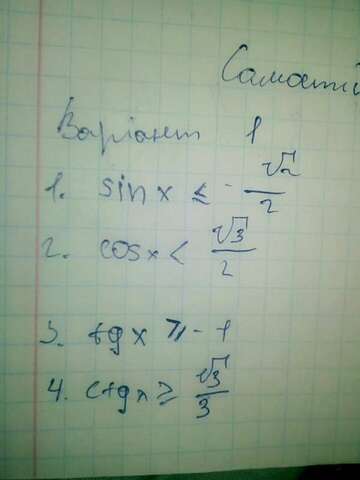 Варіант 1
1. sin x ≤ -√2/2
2. cos x < √3/2
3. tg x ≥ -1
4. ctg x ≥ √3/3